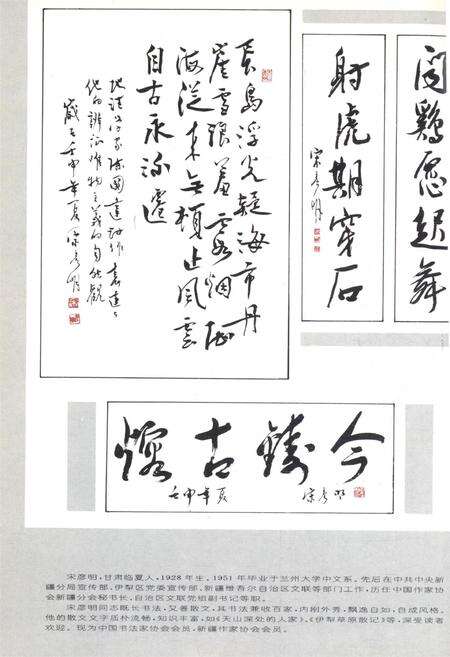 闻鷄愿起舞
射虎期穿石
宋彦明
長島浮光疑海市丹
崖雪浪
海从来无頓止風雲
自古永流遷
岁在壬申年夏宋彦明
熔古铸今
壬申年夏
宋彦明
宋彦明,甘肃临夏人,1928年生,1951年毕业于兰州大学中文系。先后在中共中央新
疆分局宣传部,伊犁区党委宣传部,新疆维吾尔自治区文联等部门工作,历任中国作家协
会新疆分会秘书长,自治区文联党组副书记等职。
宋彦明同志既长书法,又善散文,其书法兼收百家,内刚外秀,飘逸自如,自成风格。
他的散文文字质朴流畅,知识丰富,如《天山深处的人家》、《伊犁草原散记》等,深受读者
欢迎。现为中国书法家协会会员,新疆作家协会会员。